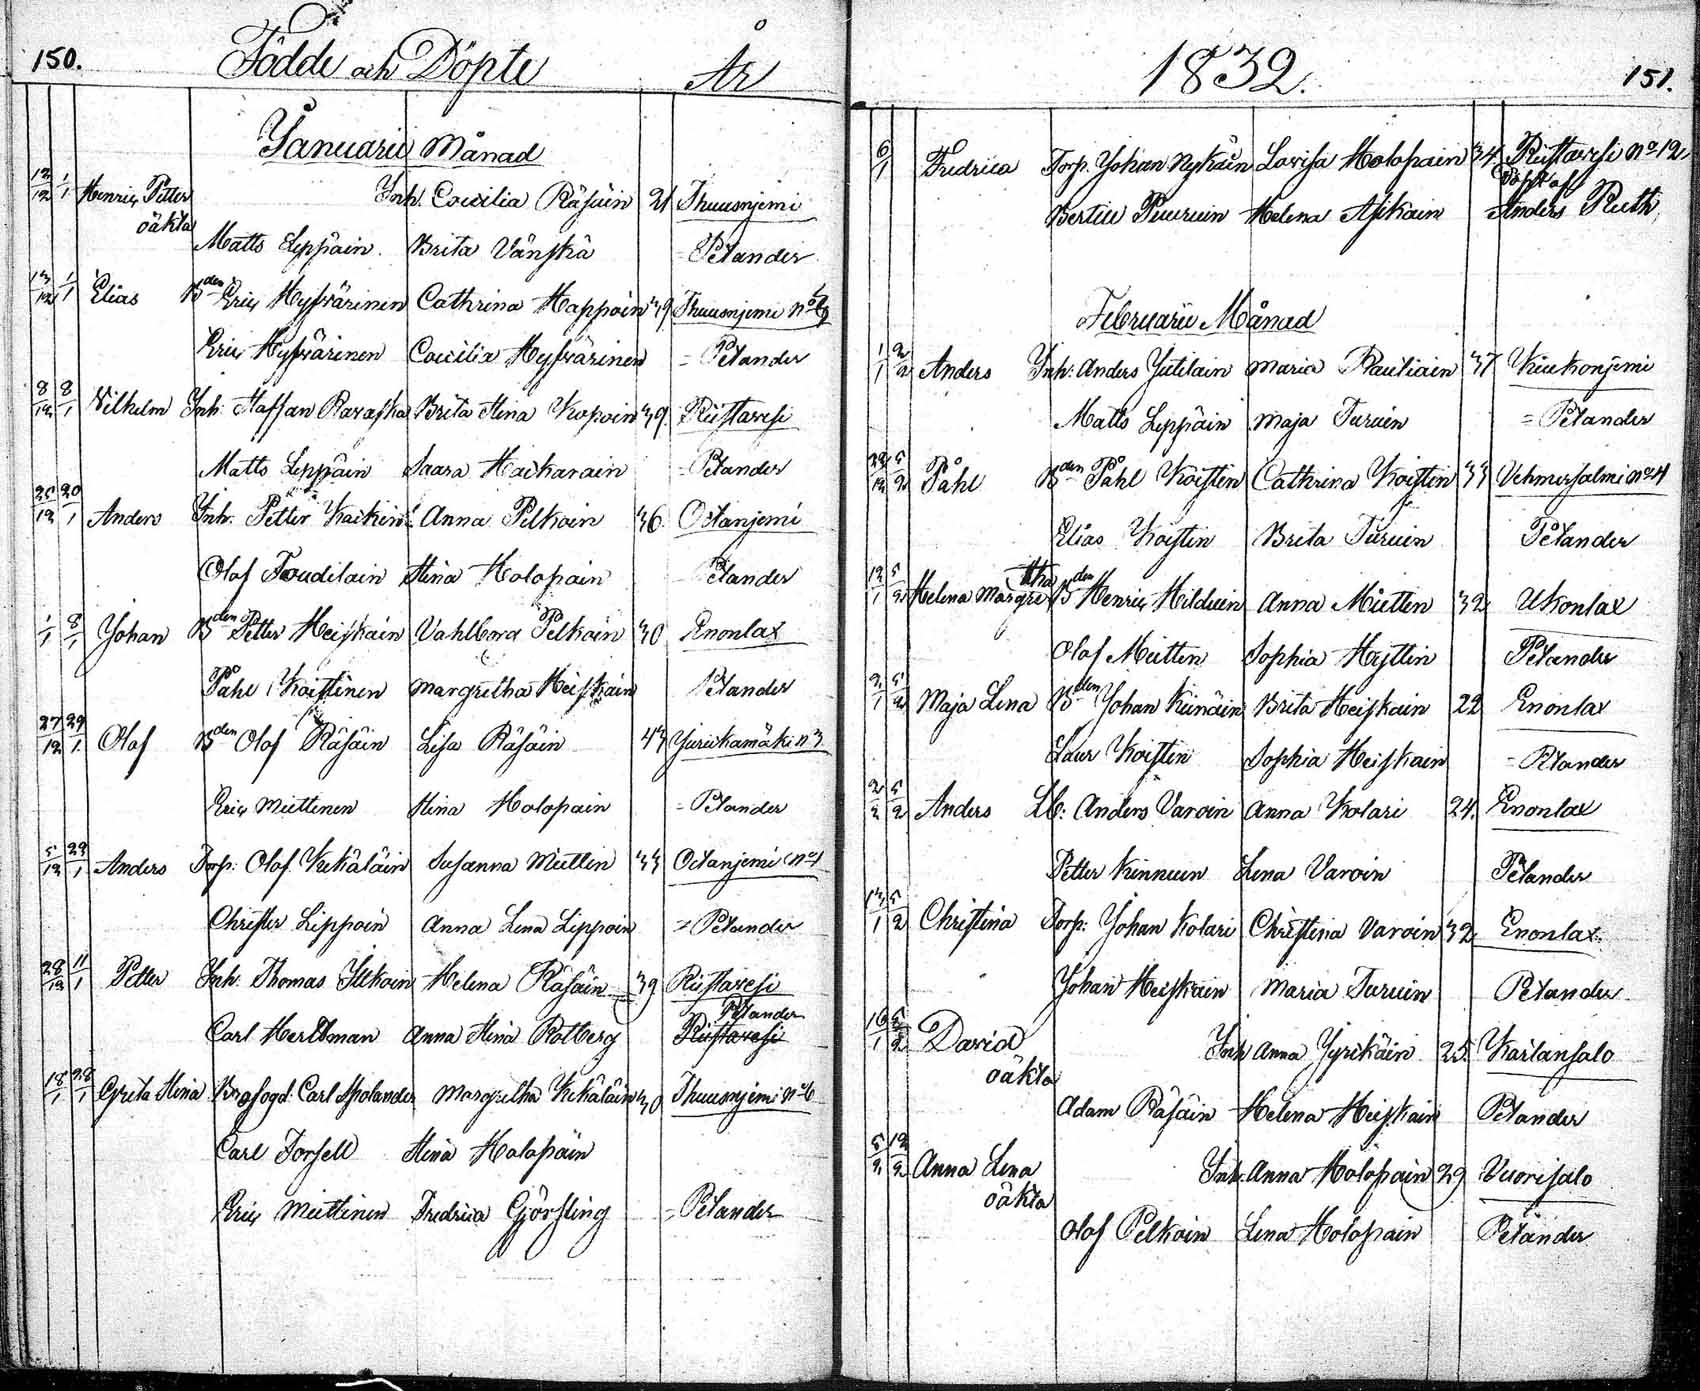 150. Födde och Döpte År
Januarii Månad
12/12 1/1 Henric Petter Inh. Cecilia Räsäin 21 Thuusnjemi
oäkta
Matts Leppäin. Brita Vänskä = Pelander
13/12 1/1 Elias Bden Eric Hyfvärinen Cathrina Happoin 39 Thuusnjemi No
Eric Hyfvärinen Cecilia Hyfvärinen = Pelander
8/12 8/1 Vilhelm Inh. Staffan Ravaska Brita Stina Kopoin 39. Riistavesi
Matts Leppäin Saara Haikarain = Pelander
25/12 20/1 Anders Inh. Petter Kaikin Anna Pelkoin 36 Oitanjemi
Olof Toudilain Stina Holopain = Pelander
1/1 8/1 Johan Bden Petter Heiskain Vahlbora Pelkoin 30 Enonlax
Påhl Koistinen Margretha Heiskain Pelander
27/12 29/1 Olof Bden Olof Räsäin Lisa Räsäin 43 Juurikamäki n 3
Eric Miettinen Stina Holopain = Pelander
5/12 29/1 Anders Torp: Olof Kekäläin Susanna Miettin 33 Oitanjemi No 1
Christer Lippoin Anna Lena Lippoin = Pelander
28/12 11/1 Petter Inh. Thomas Itkoin Helena Räsäin 39 Riistavesi
Pelander
Carl Herttman Anna Stina Rotberg Riistavesi
18/1 28/1 Greta Stina Brofogd: Carl Spolander Margretha Kekäläin 30 Thuusnjemi No 6
Carl Forsell Stina Holopäin
Eric Miettinen Fredrica Gjörsling = Pelander
1832. 151.
6/1 Fredrica Torp. Johan Nykäin Lovisa Holopain 34 Riistavesi No 12
Döpt af
Bertill Puuruin Helena Asikain Anders Ruth
Februarii Månad
1/1 2/2 Anders Inh: Anders Jutilain Maria Rautiain 37 Kiukonjemi
Matts Leppäin Maja Turuin = Pelander
23/12 5/2 Påhl Bden Påhl Koistin Cathrina Koistin 33 Vehmersalmi No 4
Elias Koistin Brita Turuin Pelander
12/1 5/2 Helena Margretha Bden Henric Hilduin Anna Miettin 32 Ukonlax
Olof Miettin Sophia Hyttin Pelander
2/1 5/2 Maja Lena Bden Johan Kiinäin Brita Heiskain 22 Enonlax
Laur Koistin Sophia Heiskain = Pelander
2/2 5/2 Anders Lb: Anders Varoin Anna Kolari 24. Enonlax
Petter Kinnuin Lena Varoin Pelander
13/1 5/2 Christina Torp: Johan Kolari Christina Varoin 32 Enonlax.
Johan Heiskain Maria Turuin Pelander
16/1 5/2 David Inh Anna Jyrikäin 25. Kaitansalo
oäkta
Adam Räsäin Helena Heiskain Pelander
5/2 12/2 Anna Lena Inh. Anna Holopain 29 Vuorisalo
oäkta
Olof Pelkoin Lena Holopain Pelander